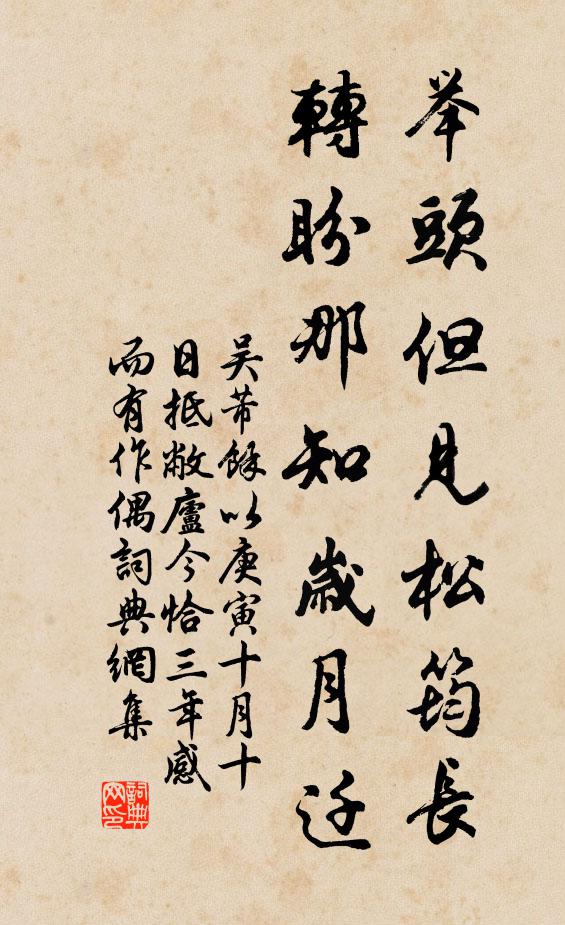 举頭但見松筠長
轉盼那知歲月迁
吴芾餘以庚寅十月十
日抵敝廬今恰三年感
而有作偶詞典網集
詞典网印